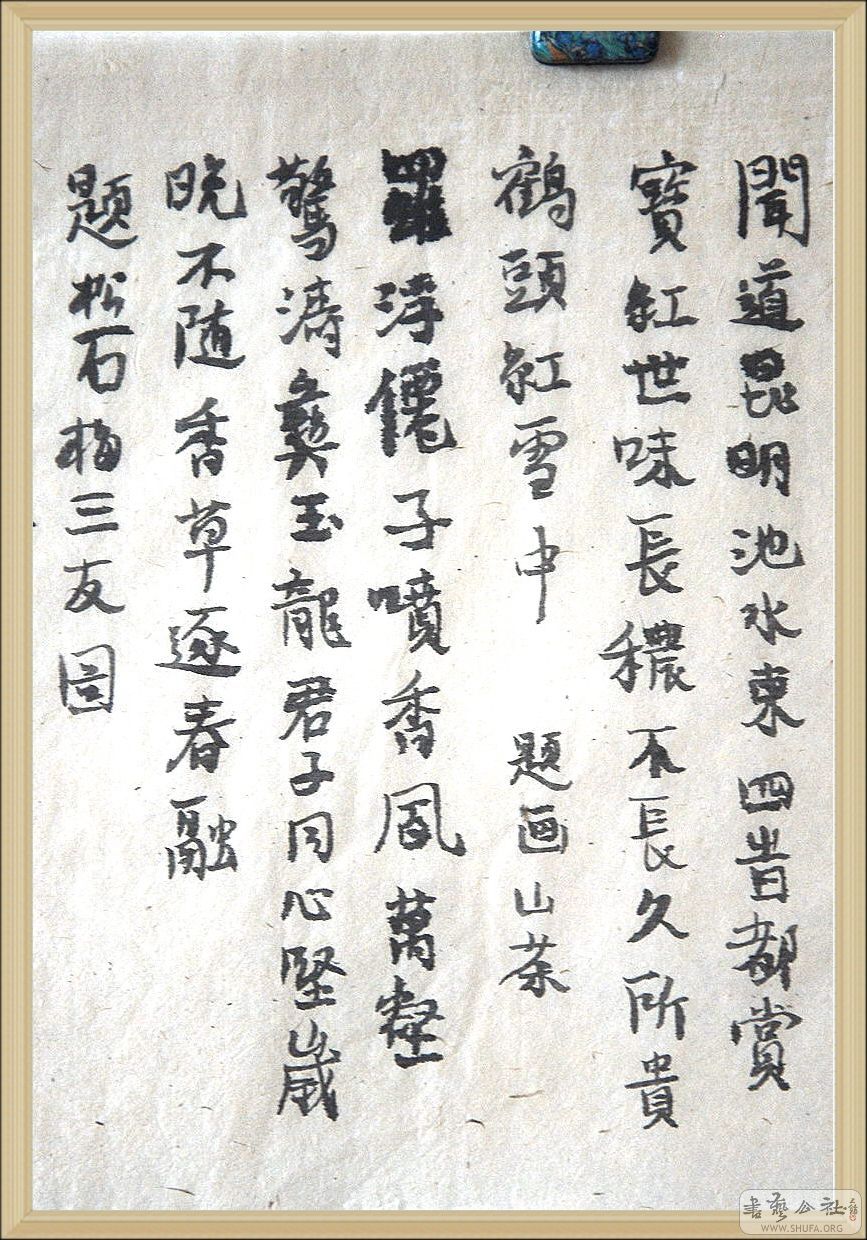 聞道昆明池水東四旹都賞
寶紅世味長穠不長久所貴
鶴頭紅雪中 題画山茶
羅浮僊子噴香風萬壑
驚濤舞玉龍君子同心堅歲
晚不随香草逐春融
題松石梅三友圖
書藝公社
WWW.SHUFA.ORG